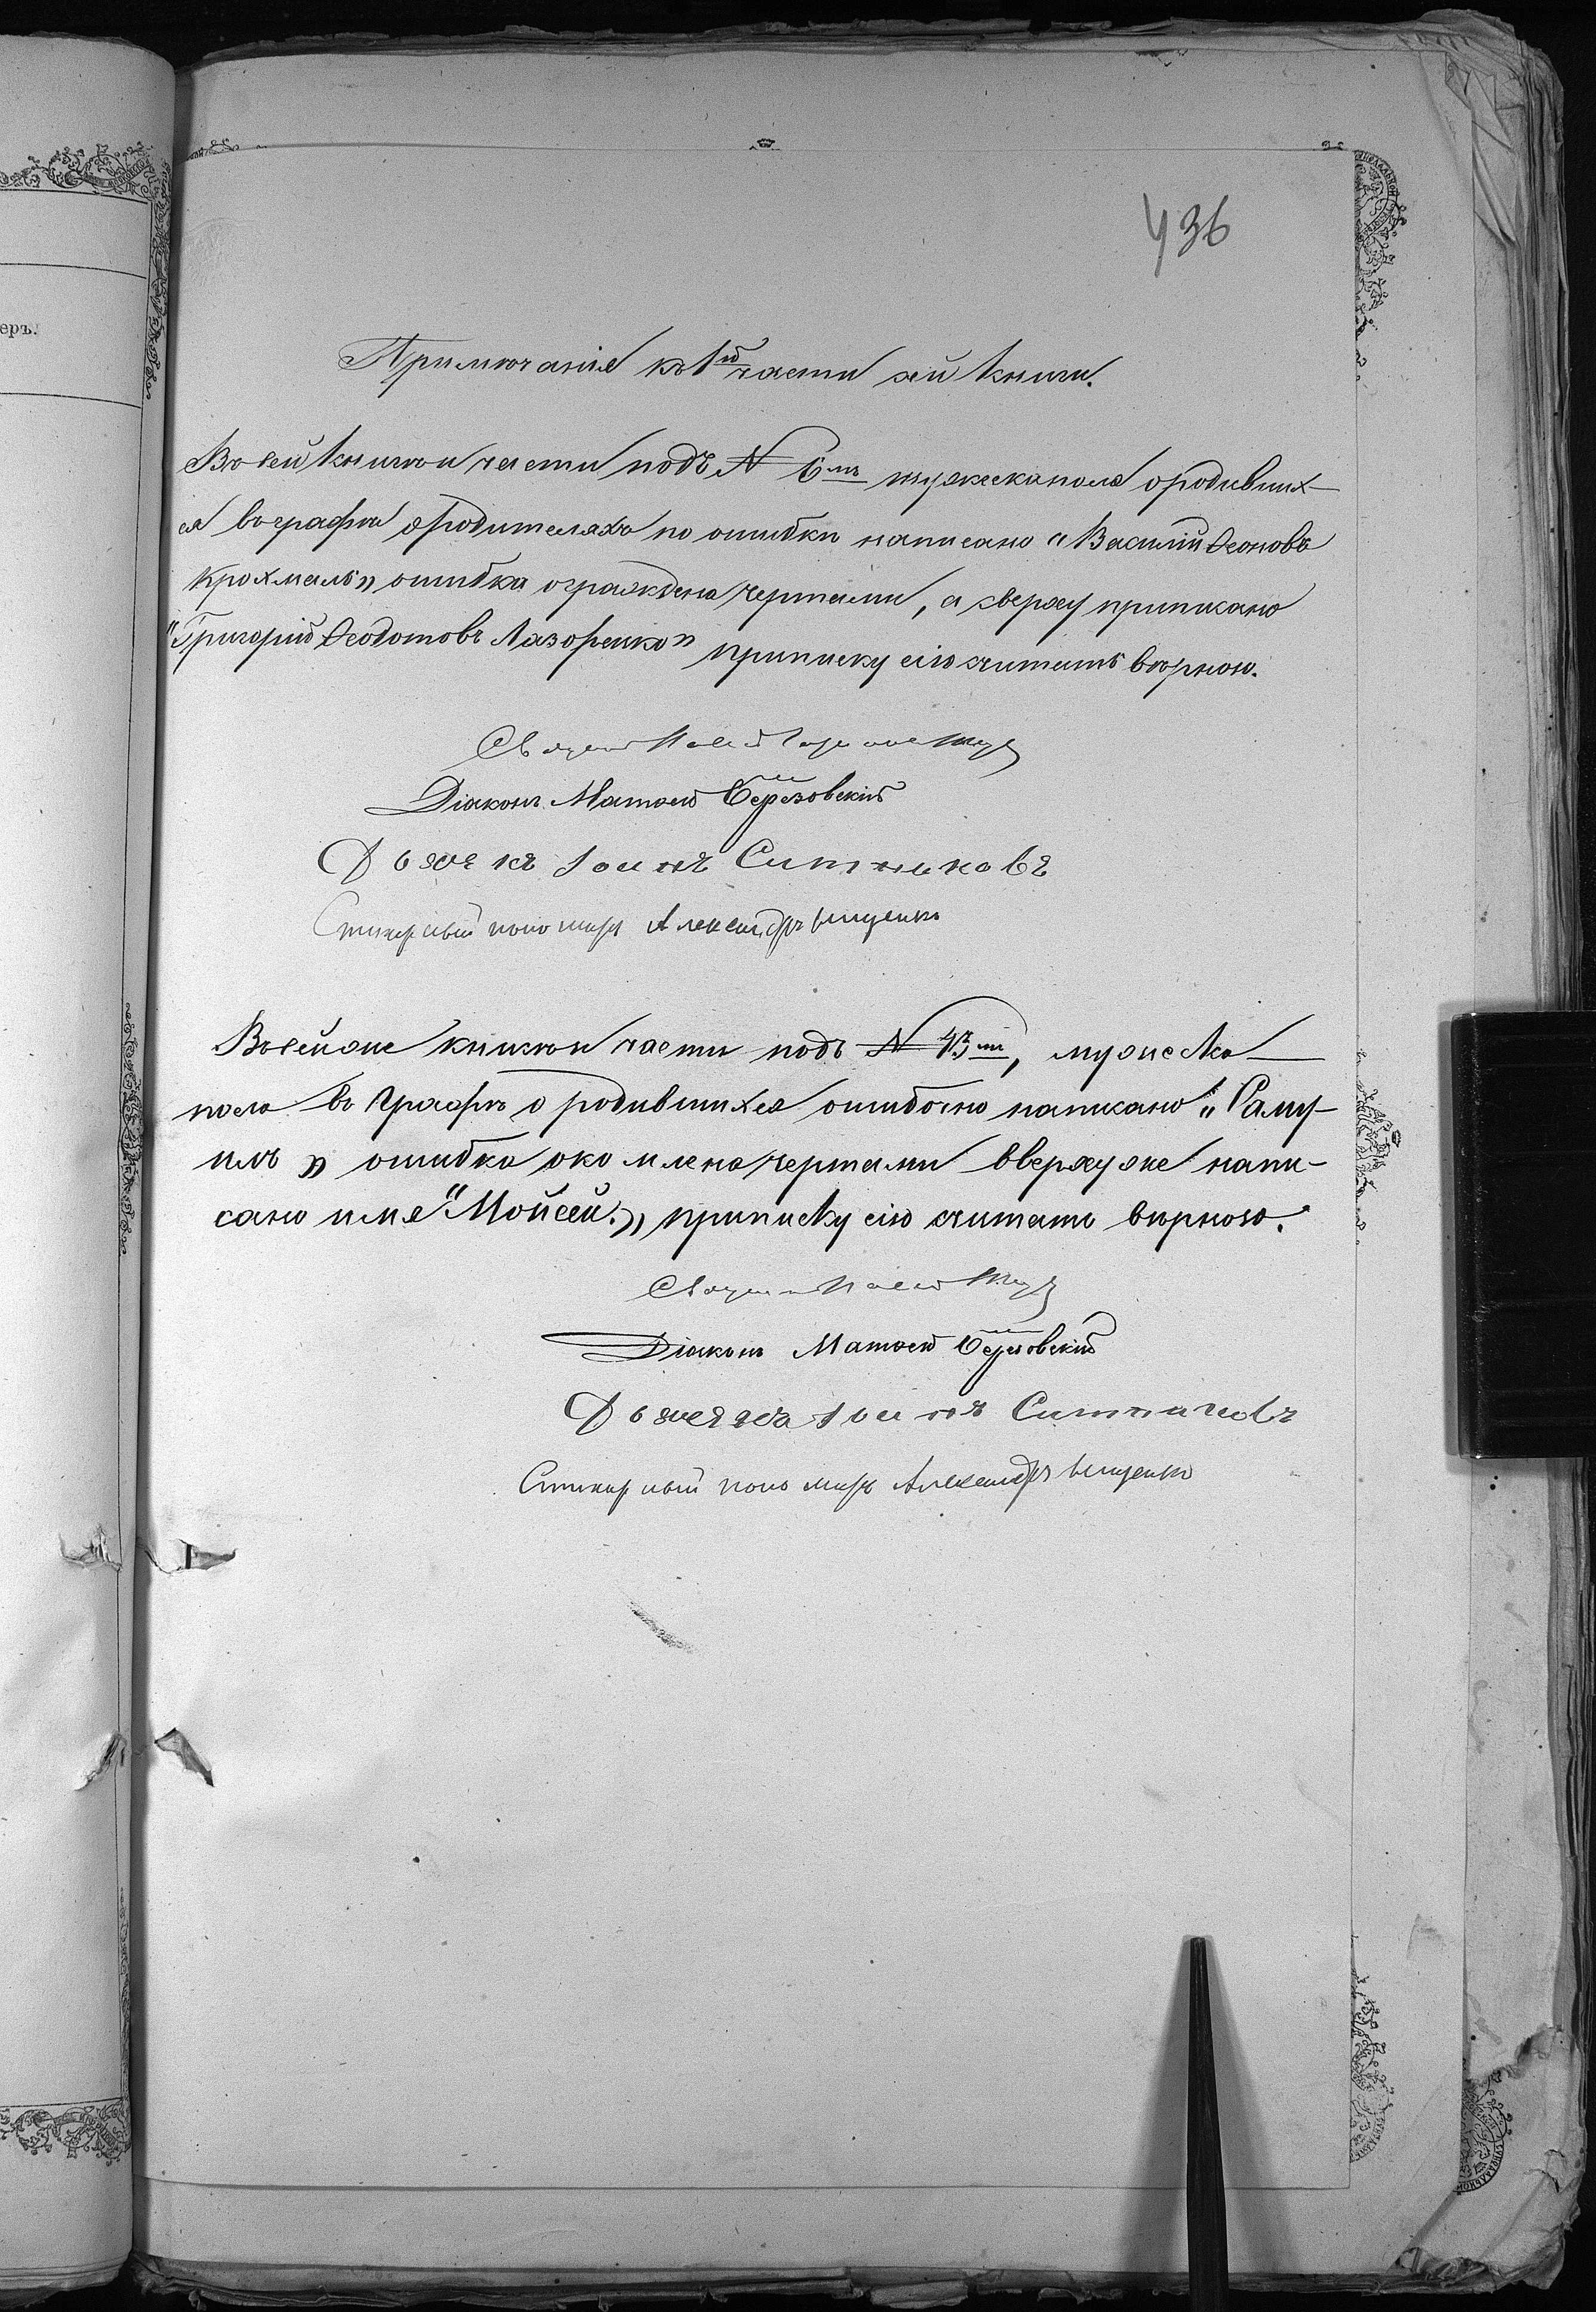 еръ.
436
Примѣчаніе къ 1й части сей книги.
Въ сей книги части подъ № 6мъ мужеска пола о родивших-
ся въ графѣ о родителяхъ по ошибкѣ написано "Василій Ѳеоновъ
Крохмаль" ошибка ограждена чертами, а сверху приписано
"Григорій Ѳеодотовъ Лазоренко" приписку сію считать вѣрною.
Діаконъ Матѳей Березовскій
Дьячекъ Іоаннъ Ситниковъ
пономарь Александръ Ищенко
Въ сей же книги части подъ № 43мъ, мужеска
пола въ графѣ о родившихся ошибочно написано "Саму-
илъ" ошибка окоймлена чертами вверху же напи-
сано имя "Мойсей." приписку сію считать вѣрною.
Діаконъ Матѳей Березовскій
Дьячекъ Іоаннъ Ситниковъ
пономарь Александръ Ищенко